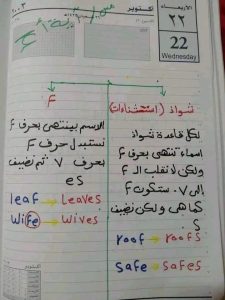 الاربعاء
أكتوبر
٢٠٠٣
٢٢
22
Wednesday
F
شواذ (استثناءات)
الاسم ينتهي بحرف F
نستبدل حرف F
بحرف V ثم نضيف
es
leaf → Leaves
Wife → Wives
لكل قاعدة شواذ
اسماء تنتهي بحرف F
ولكن لا نقلب الـ F
إلى V. ستكون F
كما هي ولكن نضيف
S
roof → roofs
Safe → Safes